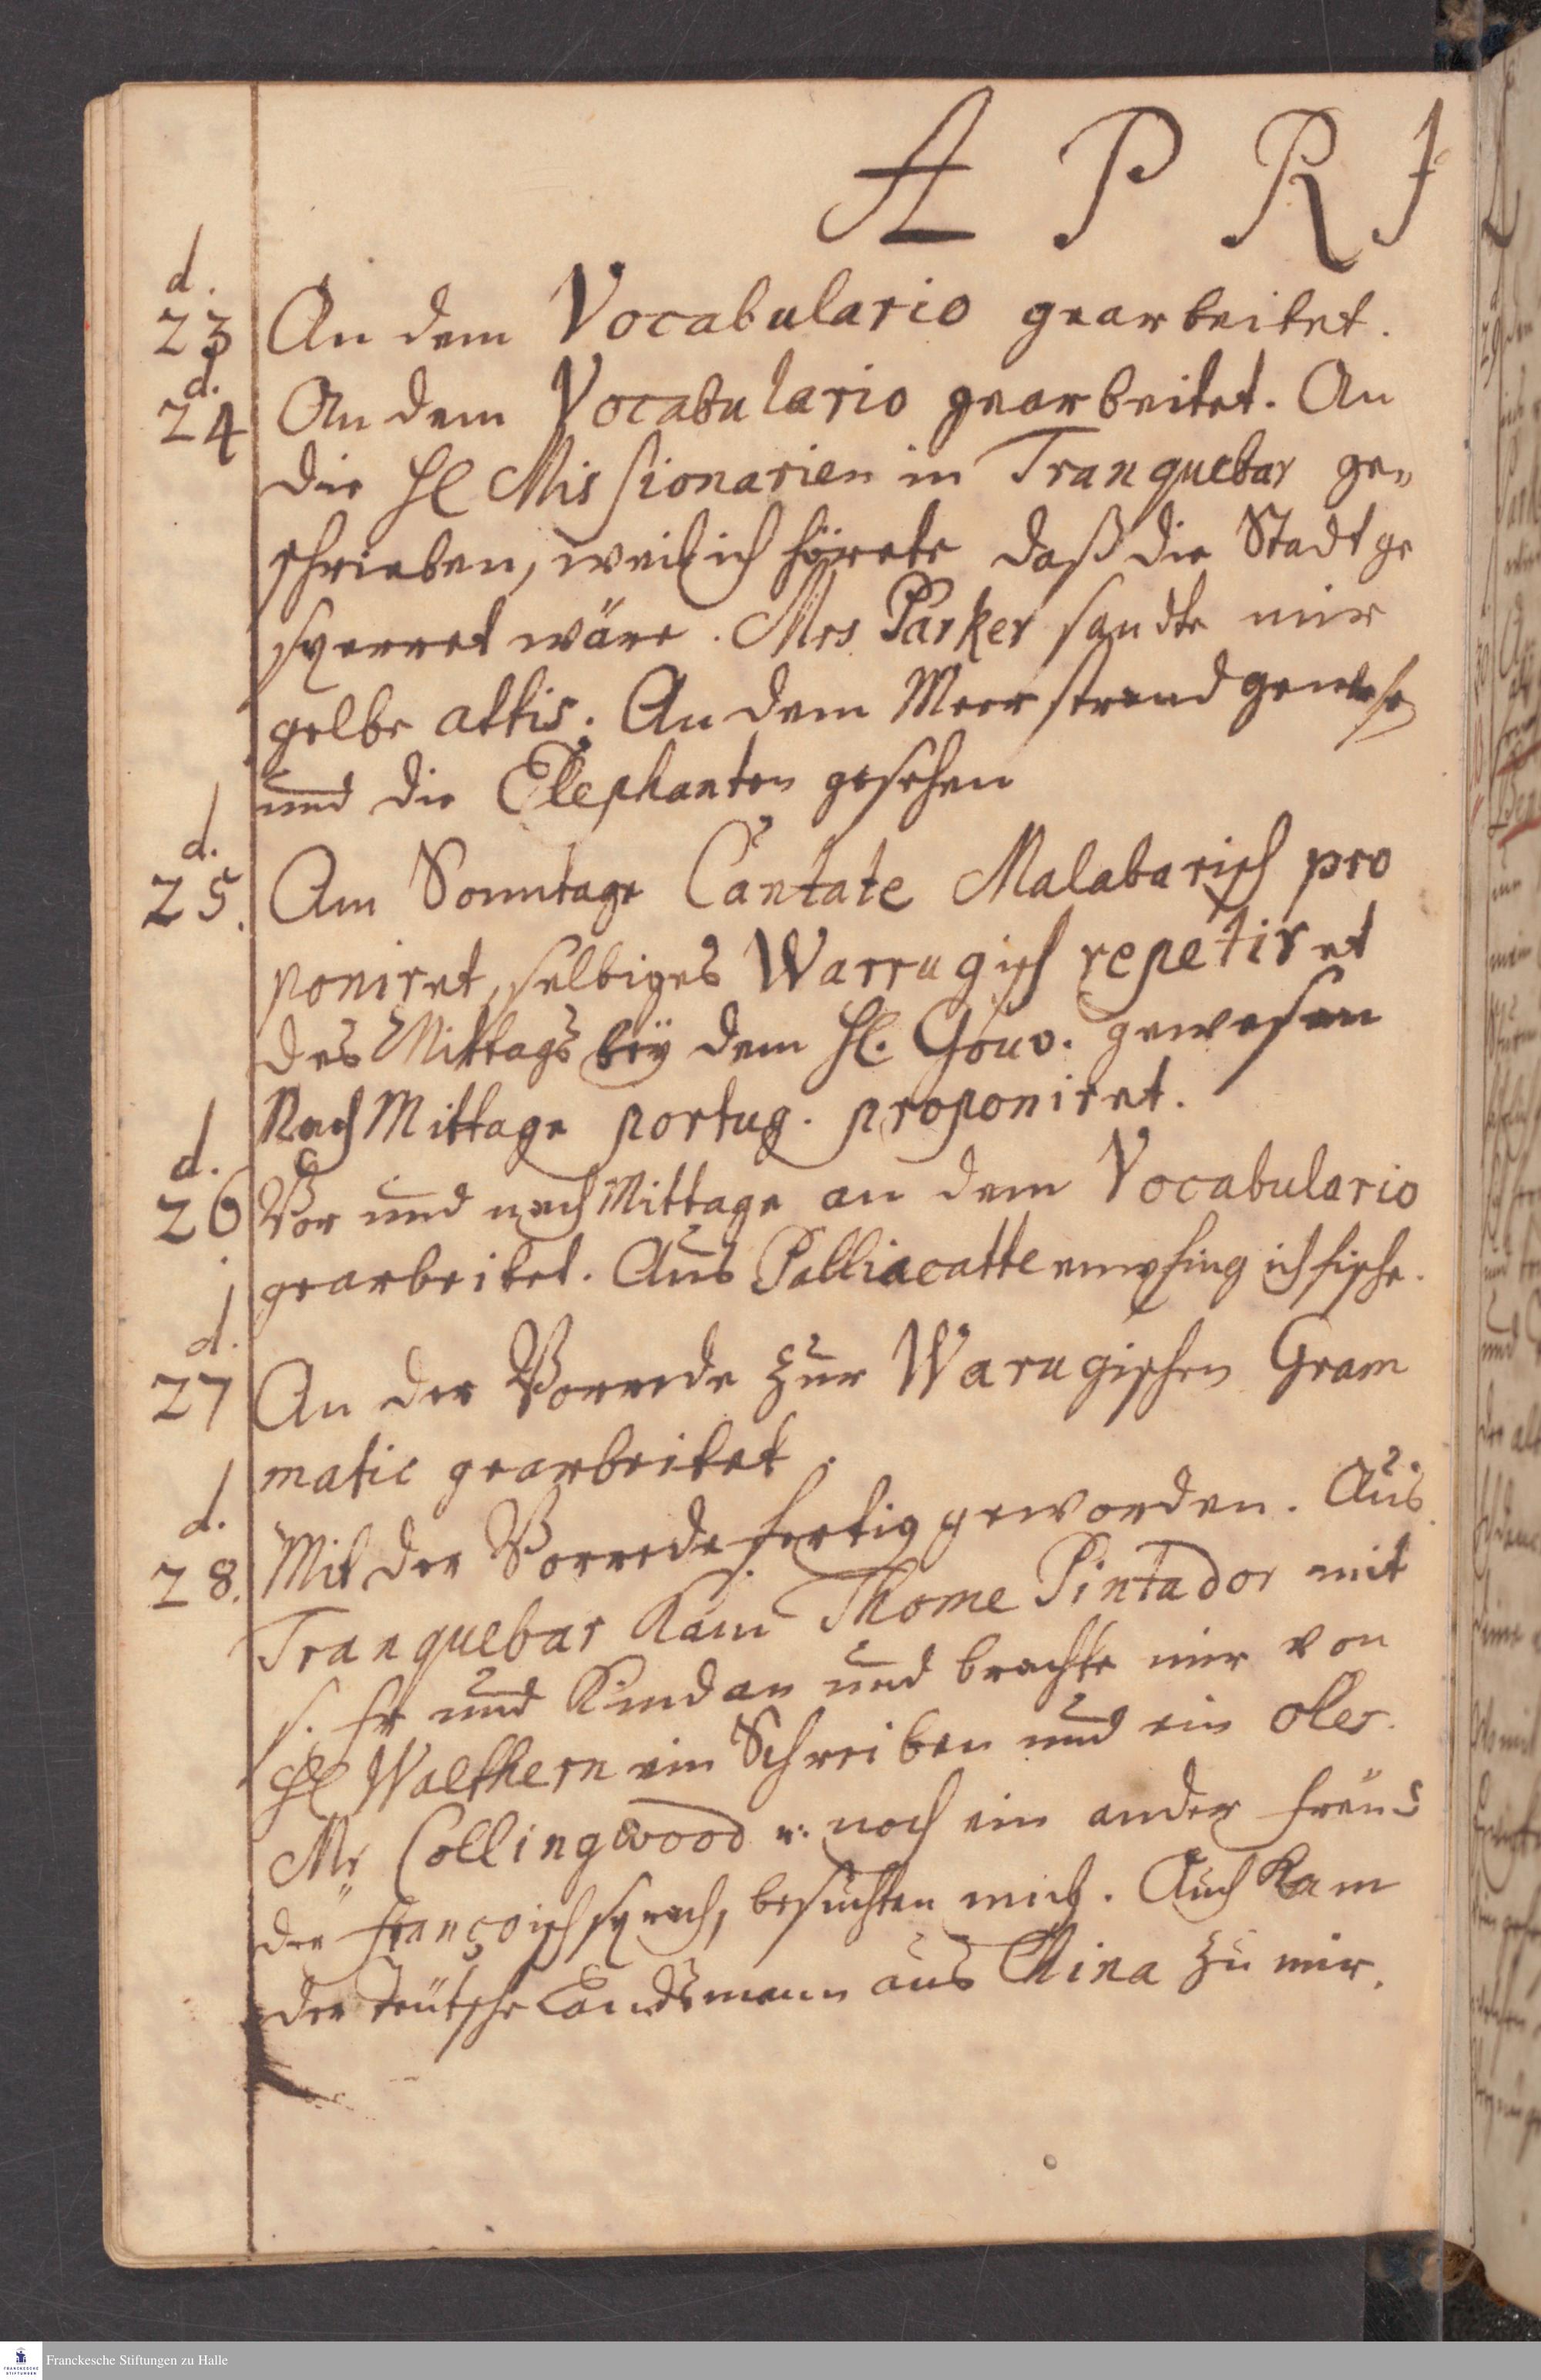 A P R I
d.
23 An dem Vocabulario gearbeitet.
d.
24 An dem Vocabulario gearbeitet. An
die Hl Missionarien in Tranquebar ge„
schrieben, weil ich hörete daß die Stadt ge
sperret wäre. Mrs Parker sandte mir
gelbe attis. An dem Meer strand gewese
und die Elephanten gesehen
d.
25. Am Sonntage Cantate Malabarisch pro
poniret, selbiges Warrugisch repetiret
des Mittags bey dem Hl. Gouv. gewesen
Nach Mittage portug. proponiret.
d.
26 Vor und nach Mittage an dem Vocabulario
gearbeitet. Aus Palliacatte empfing ich fische.
d.
27 An der Vorrede zur Warugischen Gram
matic gearbeitet.
d.
28. Mit der Vorrede fertig geworden. Aus
Tranquebar kam Thome Pintador mit
s. fr und Kind an und brachte mir von
Hl Walthern ein Schreiben und ein oles.
Mr Collingwood u. noch ein ander freund
der françoisch sprach, besuchten mich. Auch kam
der teutsche Landsmann aus China zu mir.
Franckesche Stiftungen zu Halle